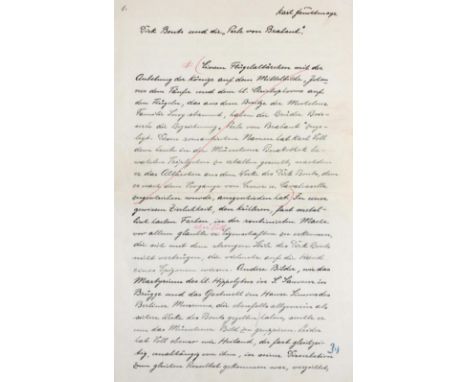 1.
Karl Gundlmayr
Dirk Bouts und die „Perle von Brabant“.
Einem Flügelaltärchen mit der
Anbetung der Könige auf dem Mittelbilde, Johan-
nes dem Täufer und dem hl. Christophorus auf
den Flügeln, das aus dem Besitze der Mechelner
Familie Snoy stammt, haben die Brüder Bois-
serée die Bezeichnung „Perle von Brabant“ zuge-
legt. Diesen romantischen Namen hat Karl Voll
dem heute in der Münchener Pinakothek be-
wahrten Triptychon zu erhalten gewußt, nachdem
er das Altärchen aus dem Werke des Dirk Bouts, dem
es nach dem Vorgange von Crowe u. Cavalcaselle
zugeschrieben wurde, ausgeschieden hat. In einer
gewissen Zierlichkeit, den kühleren, fast metal-
lisch harten Farben, in der
vor allem glaubte er Eigenschaften zu erkennen,
die sich mit dem strengen Stile des Dirk Bouts
nicht vertrügen, die vielmehr auf die Hand
eines Epigonen wiesen. Andere Bilder, wie das
Martyrium des hl. Hippolytus in S. Sauveur in
Brügge und das Gastmahl von Hause Simons des
Berliner Museums, die ebenfalls allgemein als
sichere Werke des Bouts gegolten haben, suchte er
um das Münchener Bild zu gruppieren. Leider
hat Voll ebenso wie Heiland, der fast gleichzei-
tig, unabhängig von ihm, in seiner Dissertation
zum gleichen Resultat gekommen war, verzichtet,